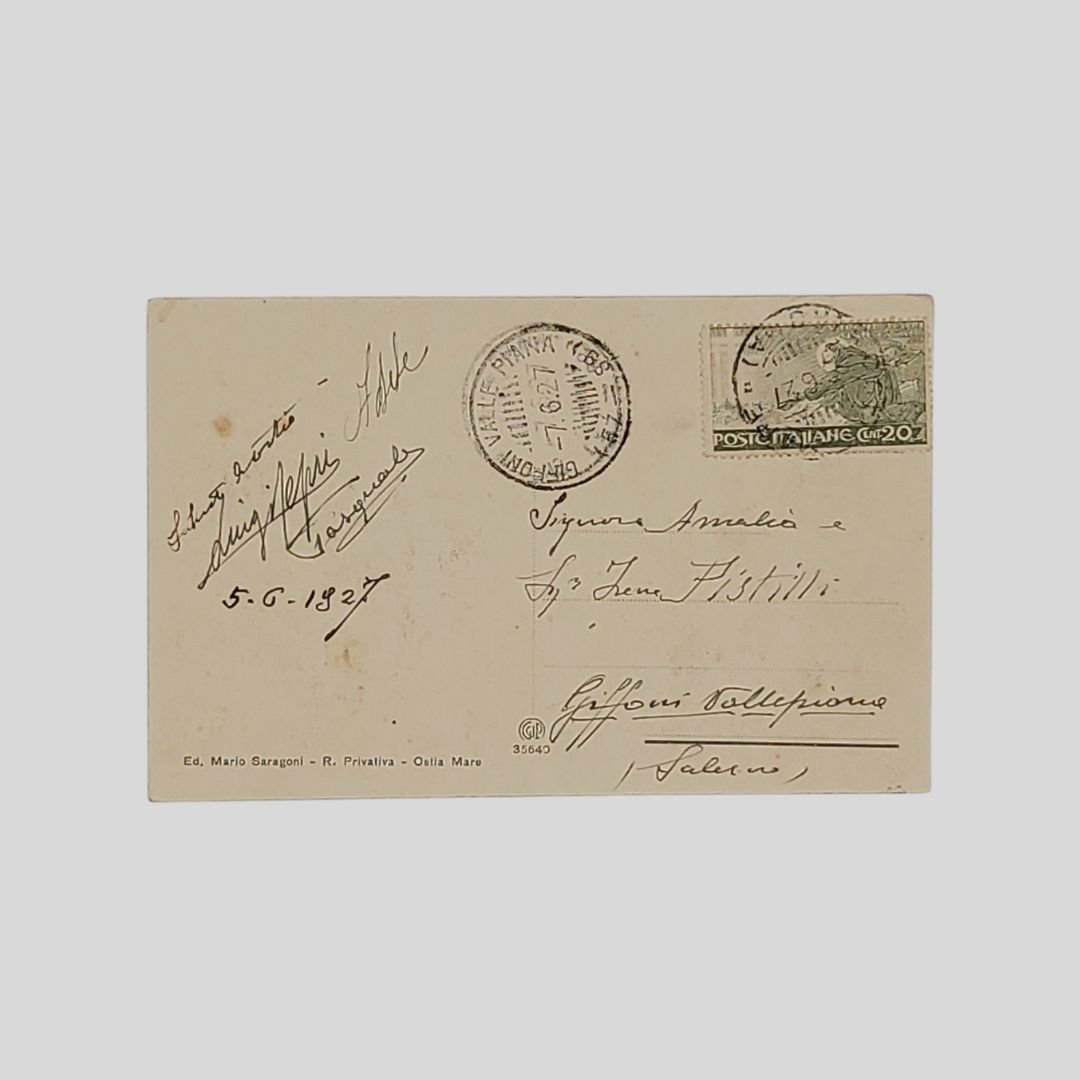 Adele
Luigi
Pasquale
5-6-1927
GIFFONI VALLE PIANA
7.6.27
POSTE ITALIANE CENT 20
Signora Amalia e
Sig.ra Irene Pistilli
Giffoni Vallepiana
(Salerno)
35640
Ed. Mario Saragoni - R. Privativa - Ostia Mare